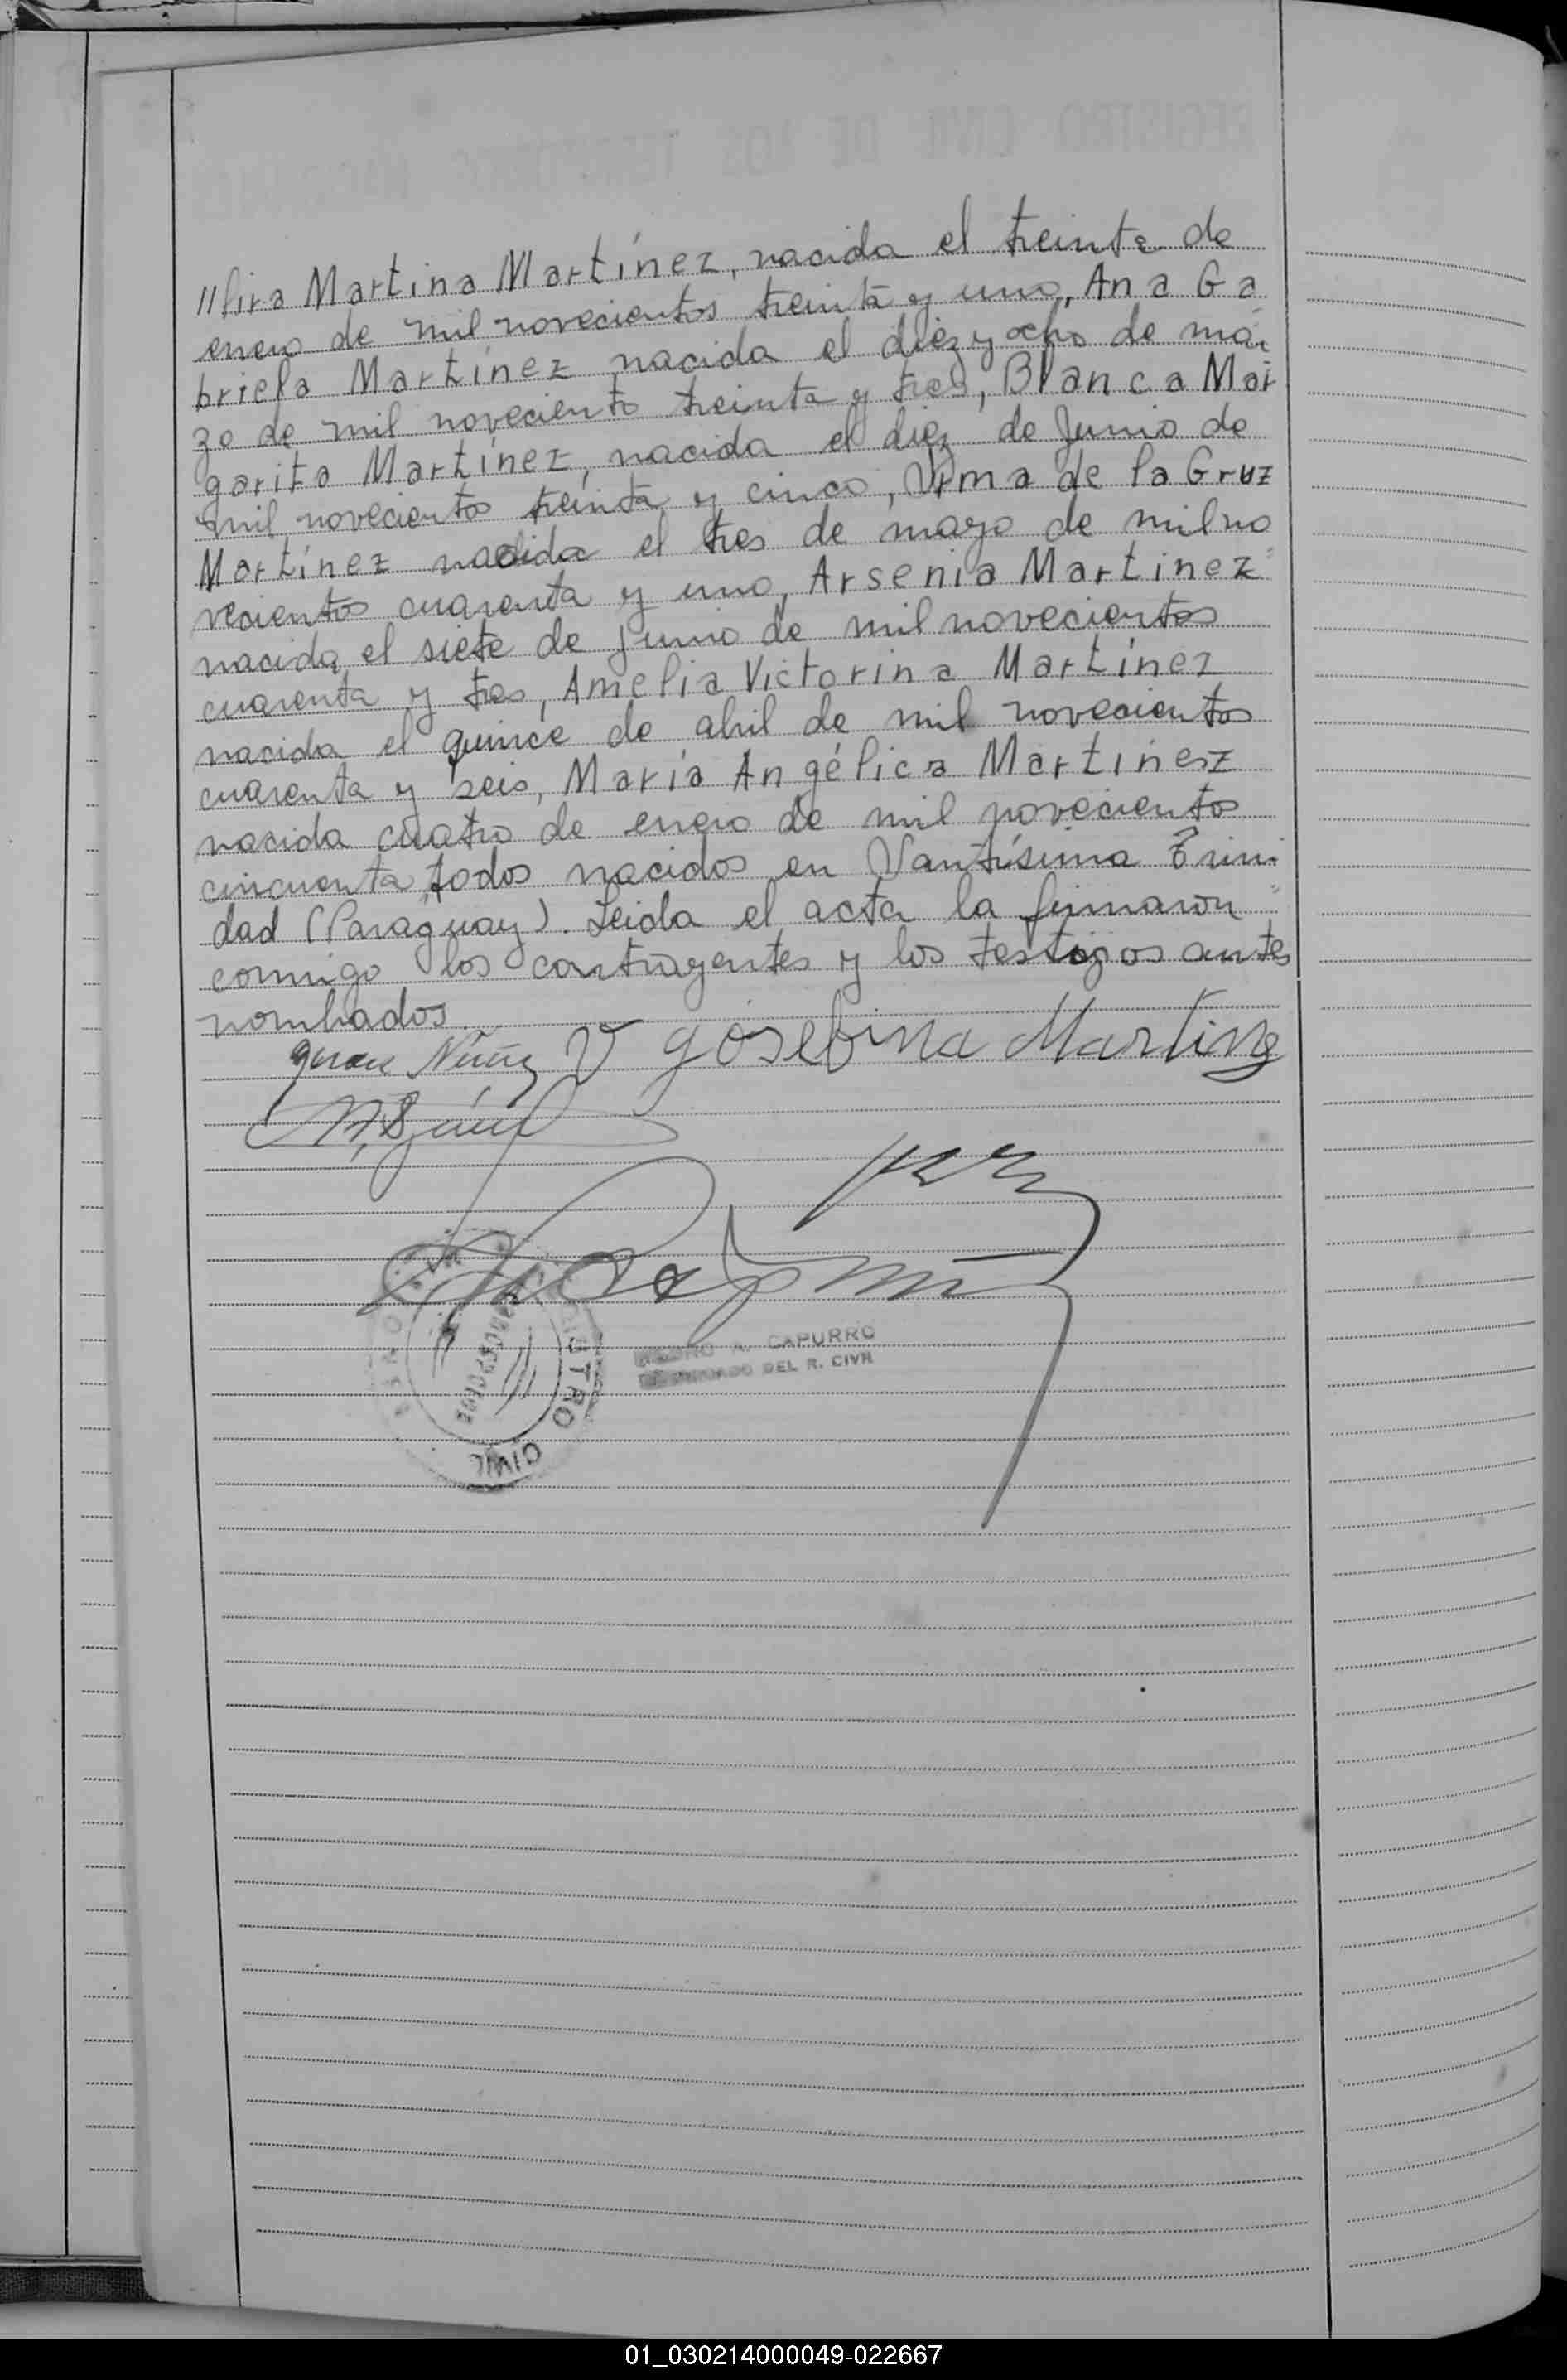 //lira Martina Martínez, nacida el treinta de
enero de mil novecientos treinta y uno, Ana Ga
briela Martínez nacida el diez y ocho de mar
zo de mil noveciento treinta y tres, Blanca Mar
garita Martínez, nacida el diez de Junio de
mil novecientos treinta y cinco, Irma de la Cruz
Martínez nacida el tres de mayo de mil no
vecientos cuarenta y uno, Arsenia Martinez
nacida el siete de junio de mil novecientos
cuarenta y tres, Amelia Victorina Martínez
nacida el quince de abril de mil novecientos
cuarenta y seis, María Angélica Martínez
nacida cuatro de enero de mil noveciento
cincuenta, todos nacidos en Santísima Trini
dad (Paraguay). Leida el acta la firmaron
conmigo los contrayentes y los testigos antes
nombados
Juan Núñez V Josefina Martinez
A. CAPURRO
DEL R. CIVIL
CIVIL
01_030214000049-022667